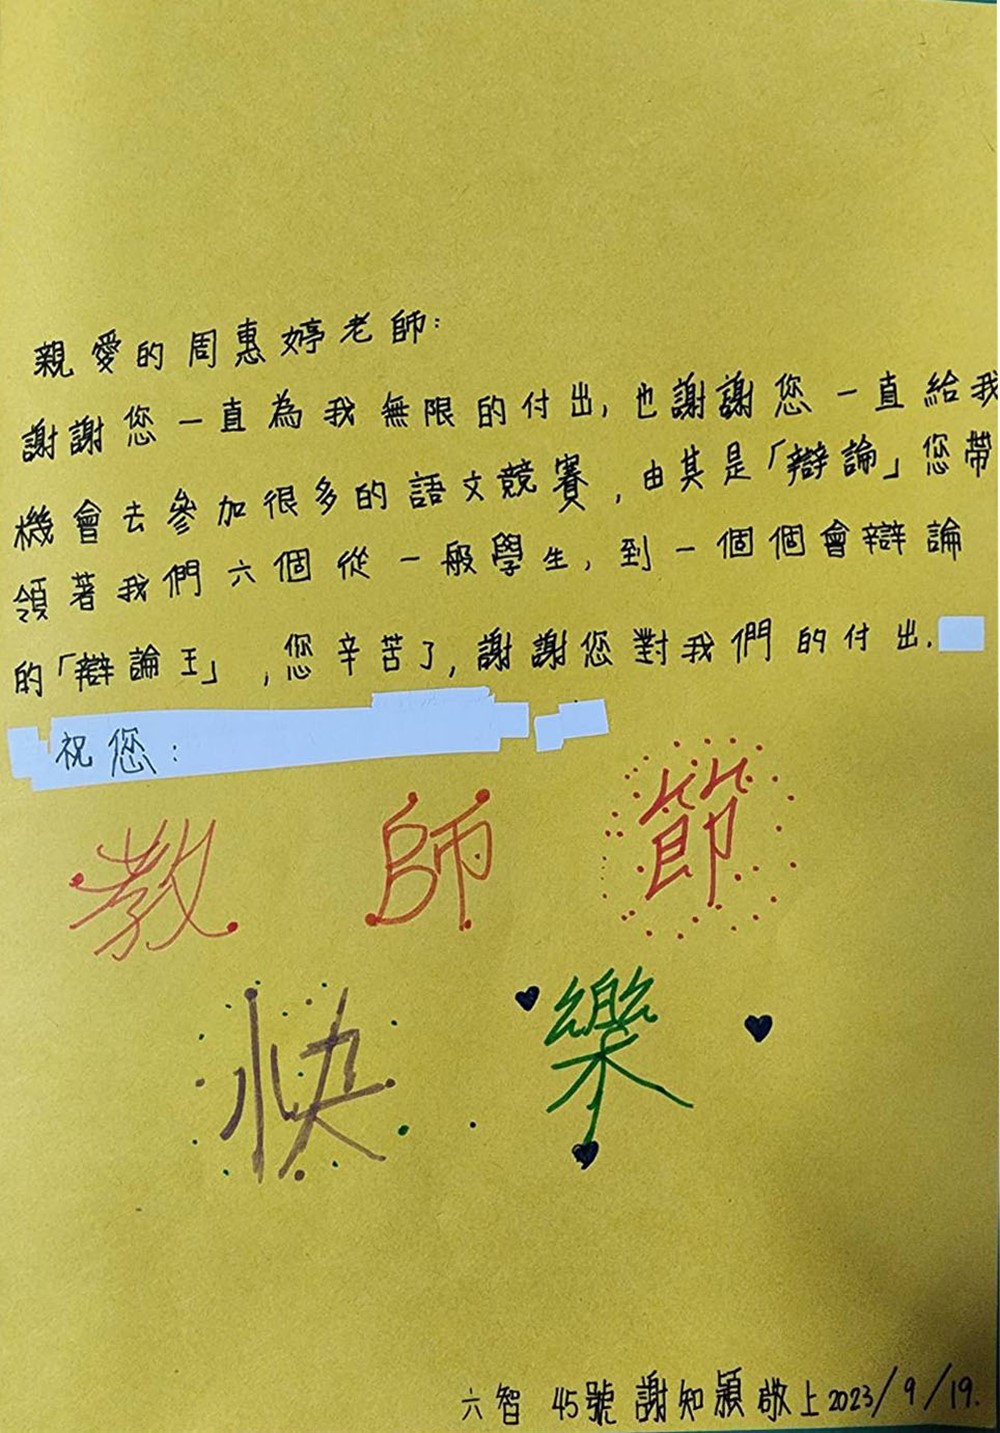 親愛的周惠婷老師:
謝謝您一直為我無限的付出,也謝謝您一直給我
機會去參加很多的語文競賽,由其是「辯論」您帶
領著我們六個從一般學生,到一個個會辯論
的「辯論王」,您辛苦了,謝謝您對我們的付出.
祝您:
教師節
快樂
六智 45號 謝知穎敬上2023/9/19.